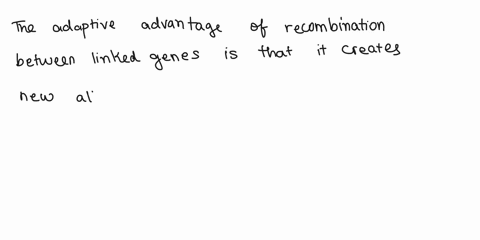 The adaptive advantage of recombination
between linked genes is that it creates
new al